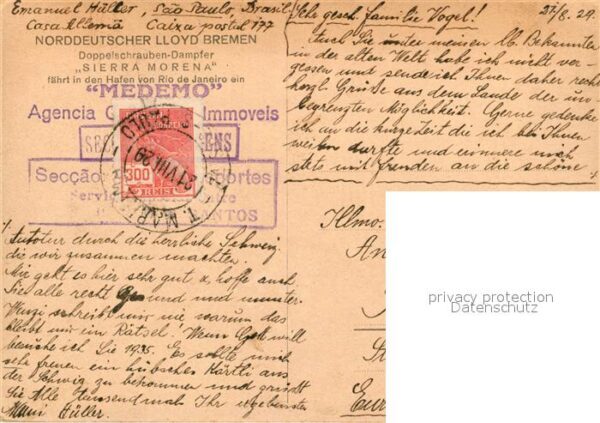 Emanuel Hüller, São Paulo, Brasil
Casa Allemã Caixa postal 177
NORDDEUTSCHER LLOYD BREMEN
Doppelschrauben-Dampfer
„SIERRA MORENA"
fährt in den Hafen von Rio de Janeiro ein
"MEDEMO"
Agencia Immoveis
SEC ENS
Secção portes
Servi
SANTOS
300
REIS
21 VIII 29
27/8. 29.
Sehr gesch. Familie Vogel!
Auch Sie unter meinen lb. Bekannten
in der alten Welt habe ich nicht ver-
gessen und sende ich Ihnen daher recht
herzl. Grüße aus dem Lande der un
begrenzten Möglichkeit. Gerne gedenke
ich an die kurze Zeit die ich bei Ihnen
weilen durfte und erinnere mich
stets mit freuden an die schöne
Autotur durch die herrliche Schweiz
die wir zusammen machten.
Mir geht es hier sehr gut u. hoffe auch
Sie alle recht Gesund und munter.
schreibt mir nie warum das
bleibt mir ein Rätsel! Wenn Gott will
besuche ich Sie 1935. Es sollte mich
sehr freuen ein hübsches Kärtli aus
der Schweiz zu bekommen und grüßt
Sie Alle Tausendmal Ihr ergebenster
Hüller.
Illmo.
privacy protection
Datenschutz